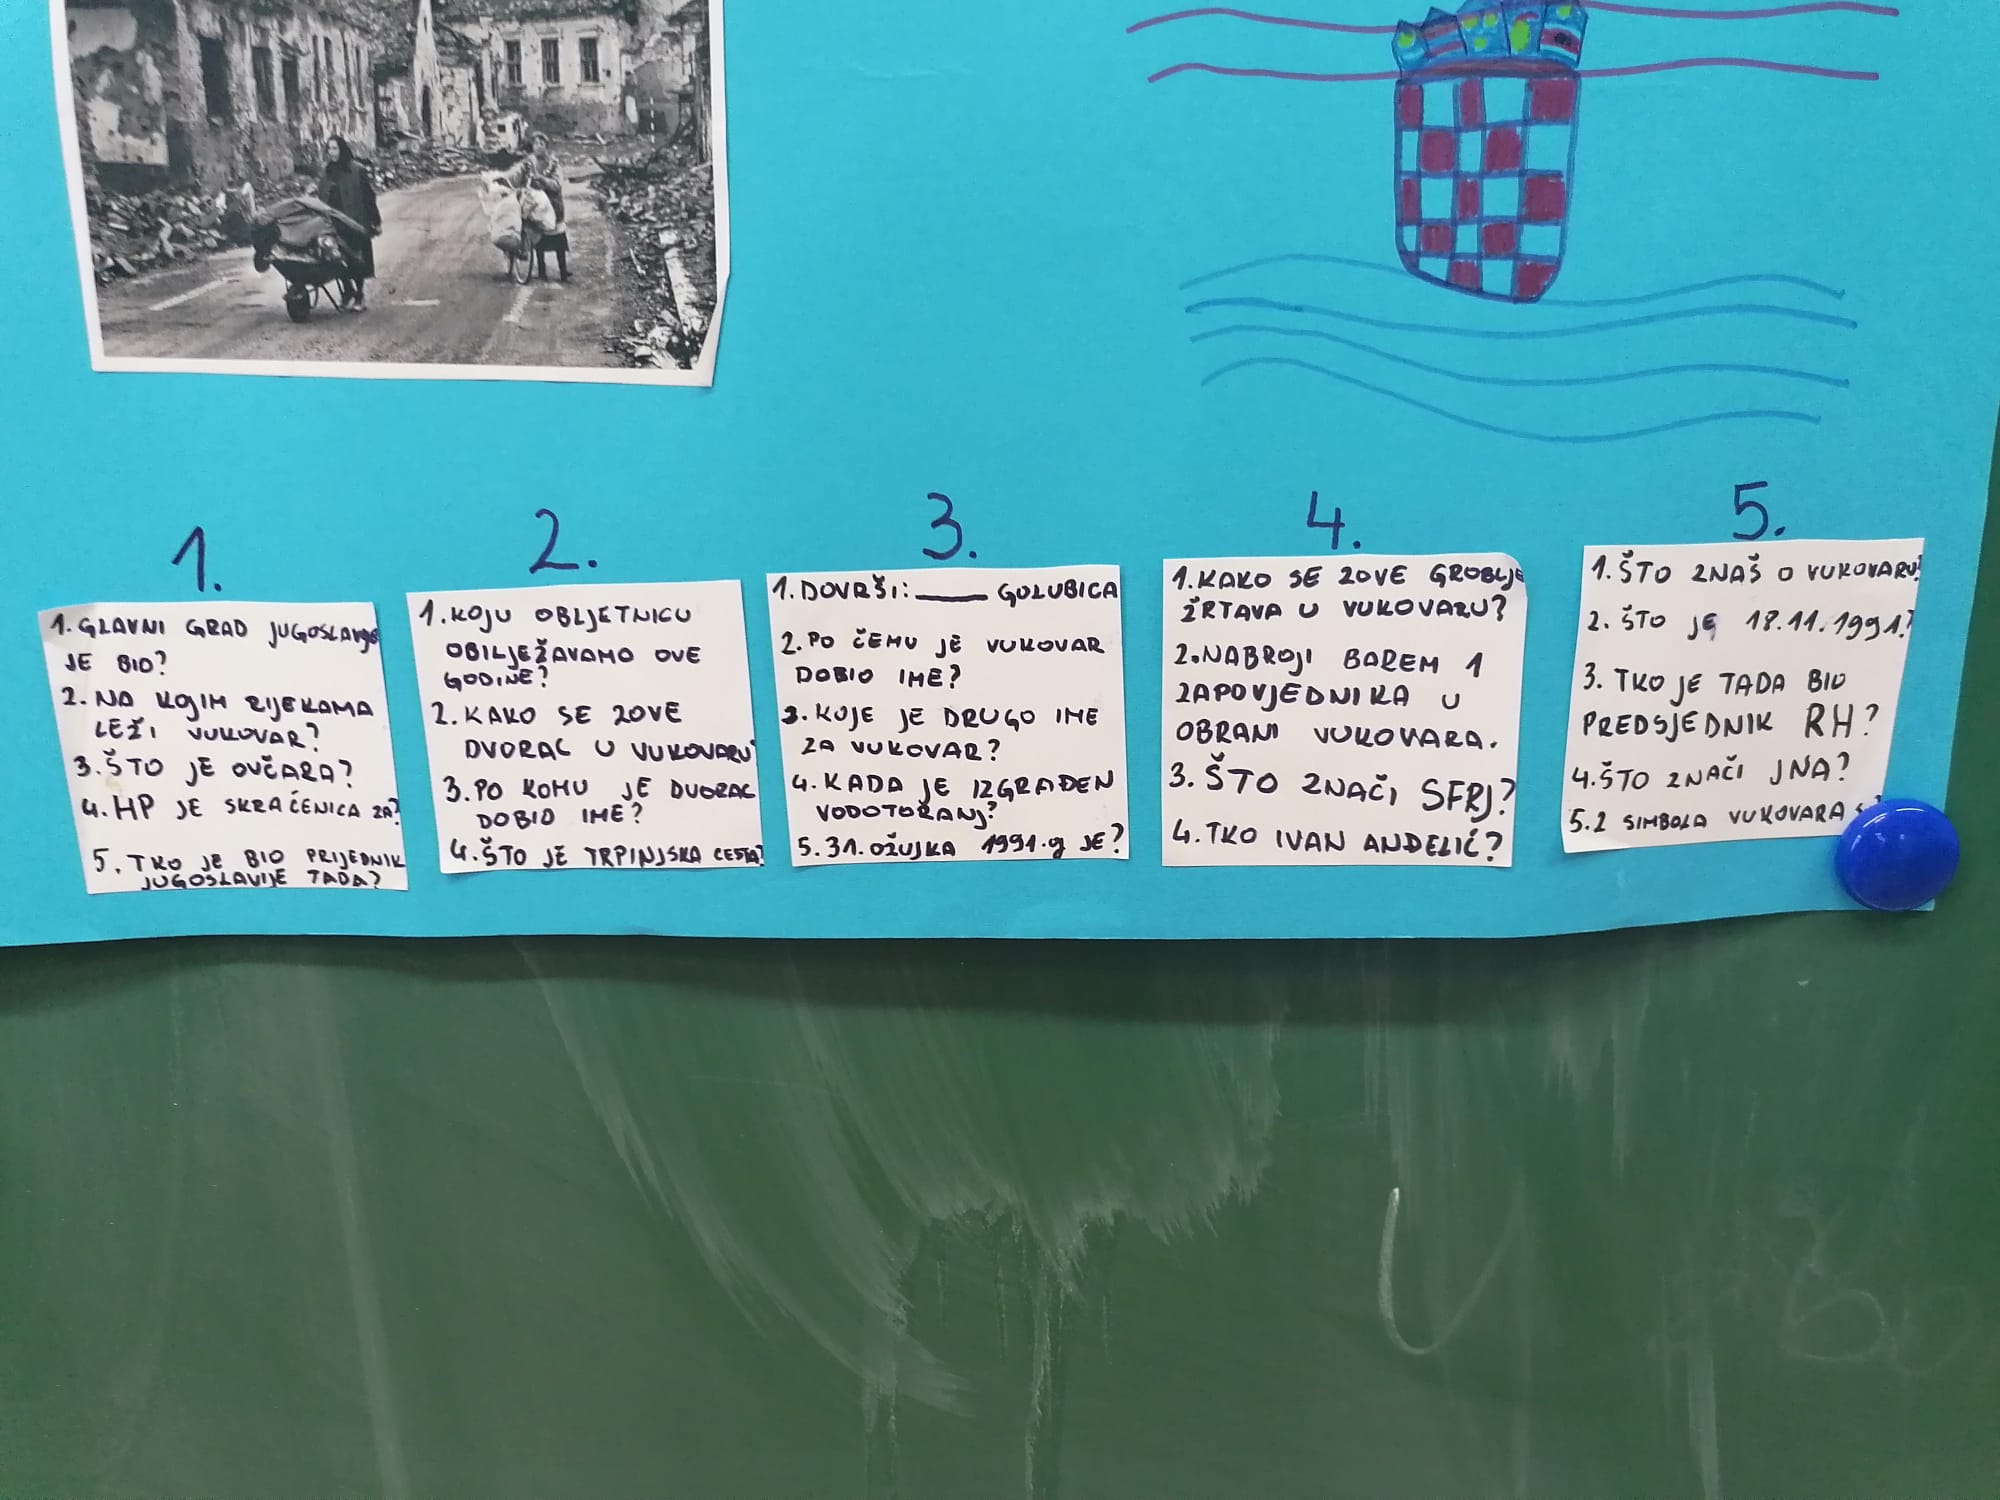 1.
1. GLAVNI GRAD JUGOSLAVIJE
JE BIO?
2. NA KOJIM RIJEKAMA
LEŽI VUKOVAR?
3. ŠTO JE OVČARA?
4. HP JE SKRAĆENICA ZA?
5. TKO JE BIO PRIJEDNIK
JUGOSLAVIJE TADA?
2.
1. KOJU OBLJETNICU
OBILJEŽAVAMO OVE
GODINE?
2. KAKO SE ZOVE
DVORAC U VUKOVARU
3. PO KOMU JE DVORAC
DOBIO IME?
4. ŠTO JE TRPINJSKA CESTA?
3.
1. DOVRŠI: _____ GOLUBICA
2. PO ČEMU JE VUKOVAR
DOBIO IME?
3. KOJE JE DRUGO IME
ZA VUKOVAR?
4. KADA JE IZGRAĐEN
VODOTORANJ?
5. 31. OŽUJKA 1991.g JE?
4.
1. KAKO SE ZOVE GROBLJE
ŽRTAVA U VUKOVARU?
2. NABROJI BAREM 1
ZAPOVJEDNIKA U
OBRANI VUKOVARA.
3. ŠTO ZNAČI SFRJ?
4. TKO IVAN ANĐELIĆ?
5.
1. ŠTO ZNAŠ O VUKOVARU?
2. ŠTO JE 18.11.1991.?
3. TKO JE TADA BIO
PREDSJEDNIK RH?
4. ŠTO ZNAČI JNA?
5. 2 SIMBOLA VUKOVARA